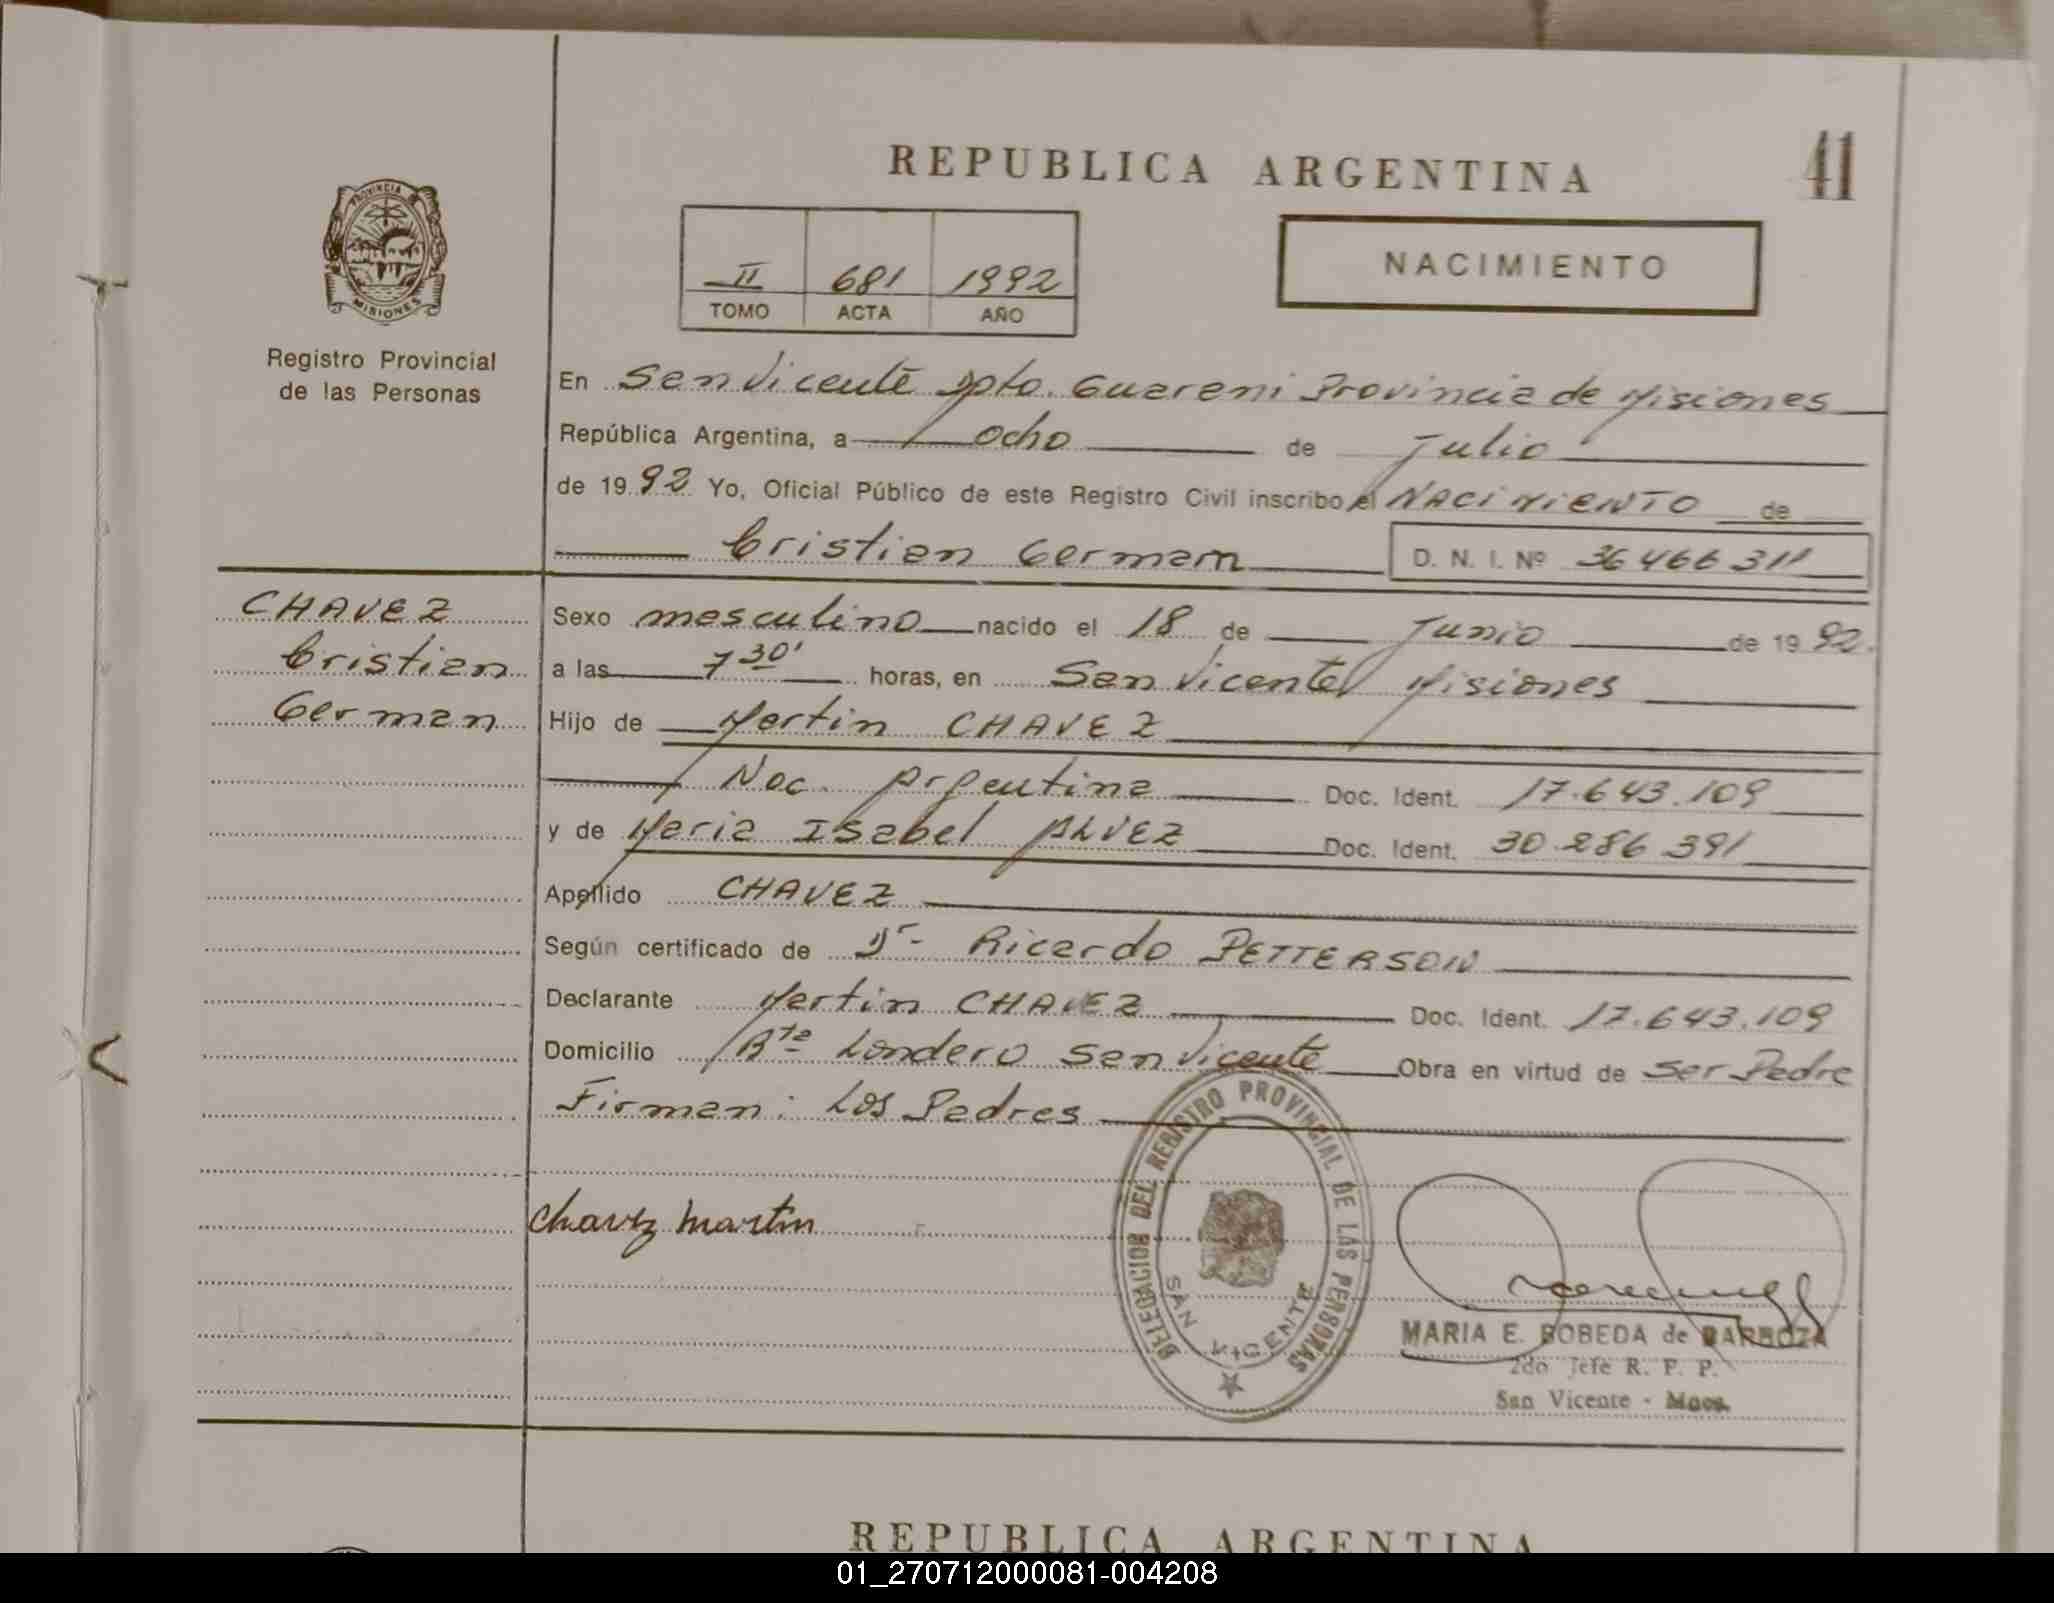 REPUBLICA ARGENTINA
41
PROVINCIA
MISIONES
Registro Provincial
de las Personas
II 681 1992
TOMO ACTA AÑO
NACIMIENTO
En San Vicente Dpto. Guarani Provincia de Misiones
República Argentina, a ocho de Julio
de 1992 Yo, Oficial Público de este Registro Civil inscribo el NACIMIENTO de
Cristian German D. N. I. Nº 36 466 311
CHAVEZ
Cristian
German
Sexo masculino nacido el 18 de Junio de 1992.
a las 7 30' horas, en San Vicente Misiones
Hijo de Martin CHAVEZ
Nac. Argentina Doc. Ident. 17.643.109
y de Maria Isabel ALVEZ Doc. Ident. 30.286 391
Apellido CHAVEZ
Según certificado de Dr- Ricardo PETTERSON
Declarante Martin CHAVEZ Doc. Ident. 17.643.109
Domicilio Londero San Vicente Obra en virtud de Ser Padre
Firman: Los Padres
Chavez Martin
DELEGACION DEL REGISTRO PROVINCIAL DE LAS PERSONAS
SAN VICENTE
MARIA E. BOBEDA de BARBOZA
2do Jefe R. P. P.
San Vicente - Mnes.
REPUBLICA ARGENTINA
01_270712000081-004208